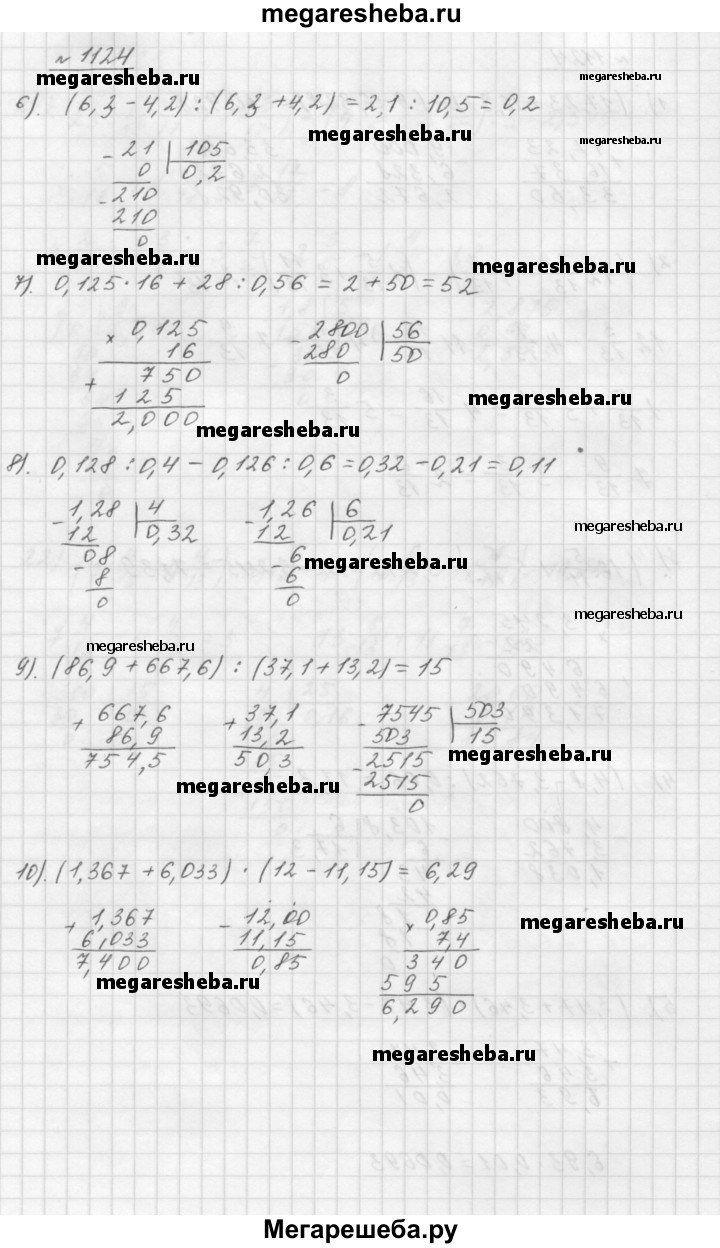 megaresheba.ru
№ 1124
megaresheba.ru megaresheba.ru
6). (6,3 - 4,2) : (6,3 + 4,2) = 2,1 : 10,5 = 0,2
megaresheba.ru
- 21 | 105
0 0,2
- 210
210
0
megaresheba.ru megaresheba.ru
7). 0,125 · 16 + 28 : 0,56 = 2 + 50 = 52
× 0,125 - 2800 | 56
16 280 50
+ 750 0
125
2,000
megaresheba.ru
megaresheba.ru
8). 0,128 : 0,4 - 0,126 : 0,6 = 0,32 - 0,21 = 0,11
- 1,28 | 4 - 1,26 | 6
12 0,32 12 0,21
megaresheba.ru
- 08 - 6
8 6
0 0
megaresheba.ru
megaresheba.ru
megaresheba.ru
9). (86,9 + 667,6) : (37,1 + 13,2) = 15
+ 667,6 + 37,1 - 7545 | 503
86,9 13,2 503 15
754,5 50,3 - 2515
2515
0
megaresheba.ru
megaresheba.ru
10). (1,367 + 6,033) · (12 - 11,15) = 6,29
+ 1,367 - 12,00 × 0,85
6,033 11,15 7,4
7,400 0,85 340
595
6,290
megaresheba.ru
megaresheba.ru
megaresheba.ru
Мегарешеба.ру